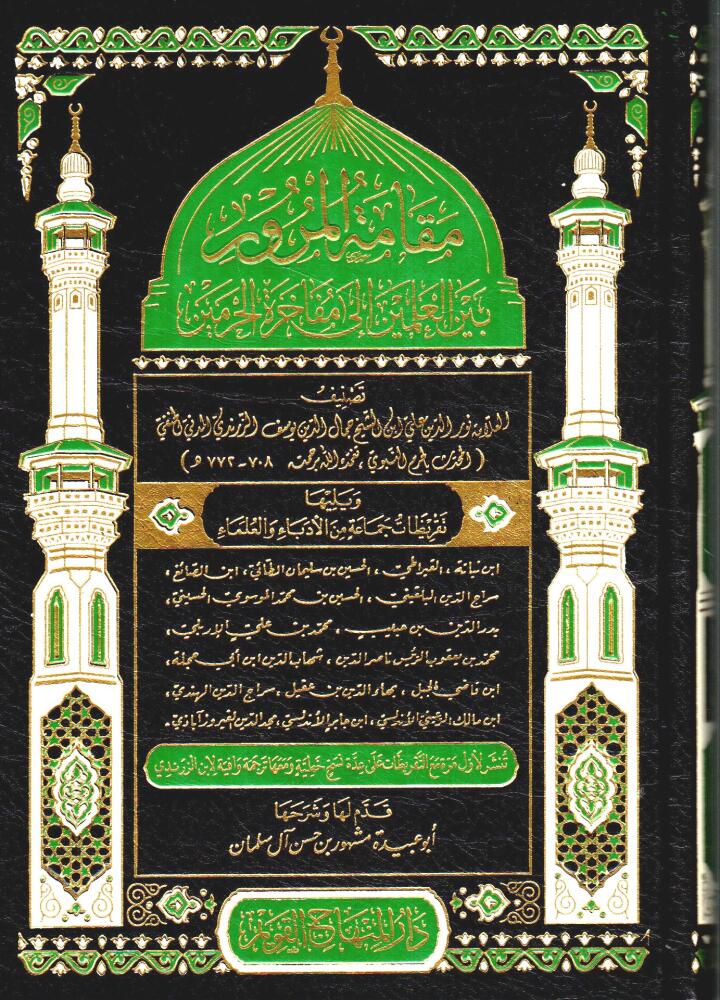 مقامة المرور
بين العلمين إلى مفاخرة الحرمين
تصنيف
العلامة نور الدين علي ابن الشيخ جمال الدين يوسف الزرندي المدني الحنفي
( المحدث بالحرم النبوي ، تغمده الله برحمته ٧٠٨ - ٧٧٢ هـ )
ويليها
تقريظات جماعة من الأدباء والعلماء
ابن نباتة ، القيراطي ، الحسين بن سليمان الطائي ، ابن الصائغ ،
سراج الدين البلقيني ، الحسين بن محمد الموسوي الحسيني ،
بدر الدين بن حبيب ، محمد بن علي الإربلي ،
محمد بن يعقوب الرئيس ناصر الدين ، شهاب الدين ابن أبي حجلة ،
ابن قاضي الجبل ، بهاء الدين بن عقيل ، سراج الدين الهندي ،
ابن مالك الرعيني الأندلسي ، ابن جابر الأندلسي ، مجد الدين الفيروزآبادي .
تنشر لأول مرة مع التقريظات على عدة نسخ خطية ومعها ترجمة وافية لابن الزرندي
قدم لها وشرحها
أبو عبيدة مشهور بن حسن آل سلمان
دار المنهاج القويم